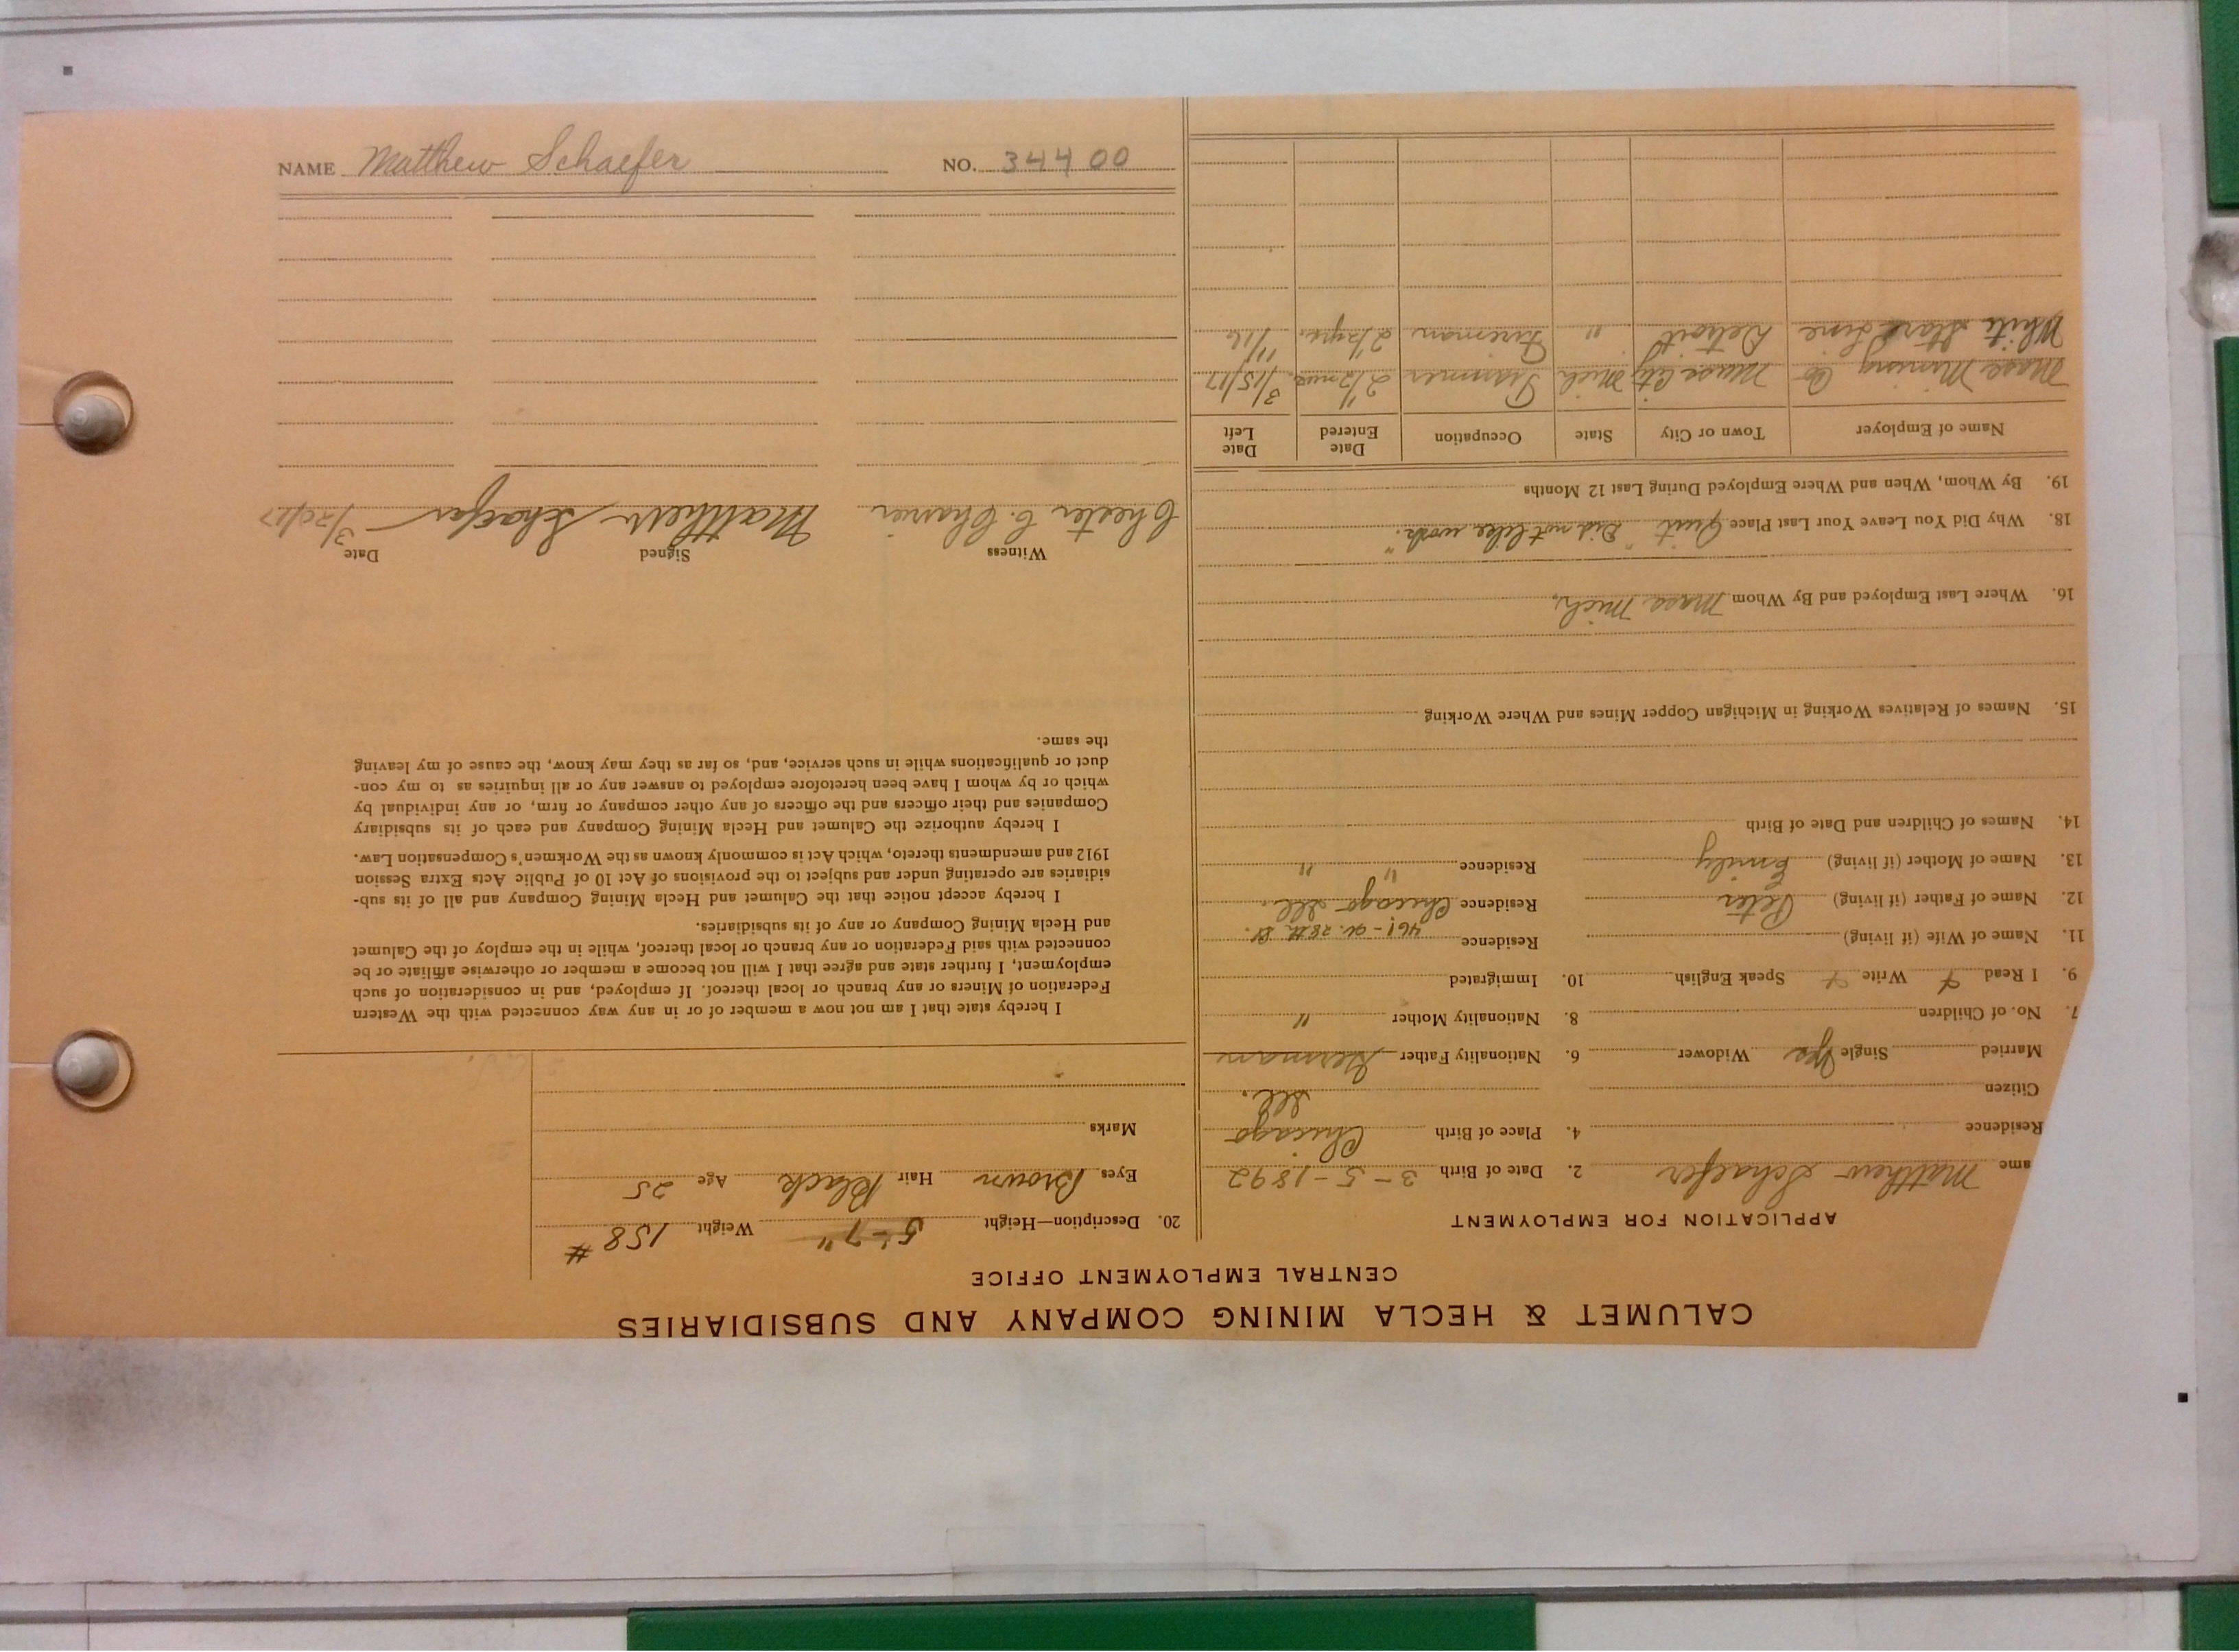 NAME Matthew Schaefer NO. 34400
CALUMET & HECLA MINING COMPANY AND SUBSIDIARIES
CENTRAL EMPLOYMENT OFFICE
APPLICATION FOR EMPLOYMENT
ame Matthew Schaefer 2. Date of Birth 3-5-1892
Residence 4. Place of Birth Chicago
Citizen Ill.
Married Single Yes Widower 6. Nationality Father German
7. No. of Children 8. Nationality Mother "
9. I Read Y Write Y Speak English 10. Immigrated
11. Name of Wife (if living) Residence
461-W. 28th St.
12. Name of Father (if living) Peter Residence Chicago Ill.
13. Name of Mother (if living) Emily Residence " "
14. Names of Children and Date of Birth
15. Names of Relatives Working in Michigan Copper Mines and Where Working
16. Where Last Employed and By Whom Mass Mich.
18. Why Did You Leave Your Last Place Quit "Did not like work."
19. By Whom, When and Where Employed During Last 12 Months
Name of Employer Town or City State Occupation Date Entered Date Left
Mass Mining Co Mass City Mich Trammer 2 1/2 mos. 3/15/17
White Star Line Detroit " Fireman 2 1/2 yrs. 11/16
20. Description—Height 5'-7" Weight 158#
Eyes Brown Hair Black Age 25
Marks
I hereby state that I am not now a member of or in any way connected with the Western
Federation of Miners or any branch or local thereof. If employed, and in consideration of such
employment, I further state and agree that I will not become a member or otherwise affiliate or be
connected with said Federation or any branch or local thereof, while in the employ of the Calumet
and Hecla Mining Company or any of its subsidiaries.
I hereby accept notice that the Calumet and Hecla Mining Company and all of its sub-
sidiaries are operating under and subject to the provisions of Act 10 of Public Acts Extra Session
1912 and amendments thereto, which Act is commonly known as the Workmen's Compensation Law.
I hereby authorize the Calumet and Hecla Mining Company and each of its subsidiary
Companies and their officers and the officers of any other company or firm, or any individual by
which or by whom I have been heretofore employed to answer any or all inquiries as to my con-
duct or qualifications while in such service, and, so far as they may know, the cause of my leaving
the same.
Witness Signed Date
Chester C. Matthew Schaefer 3/20/17